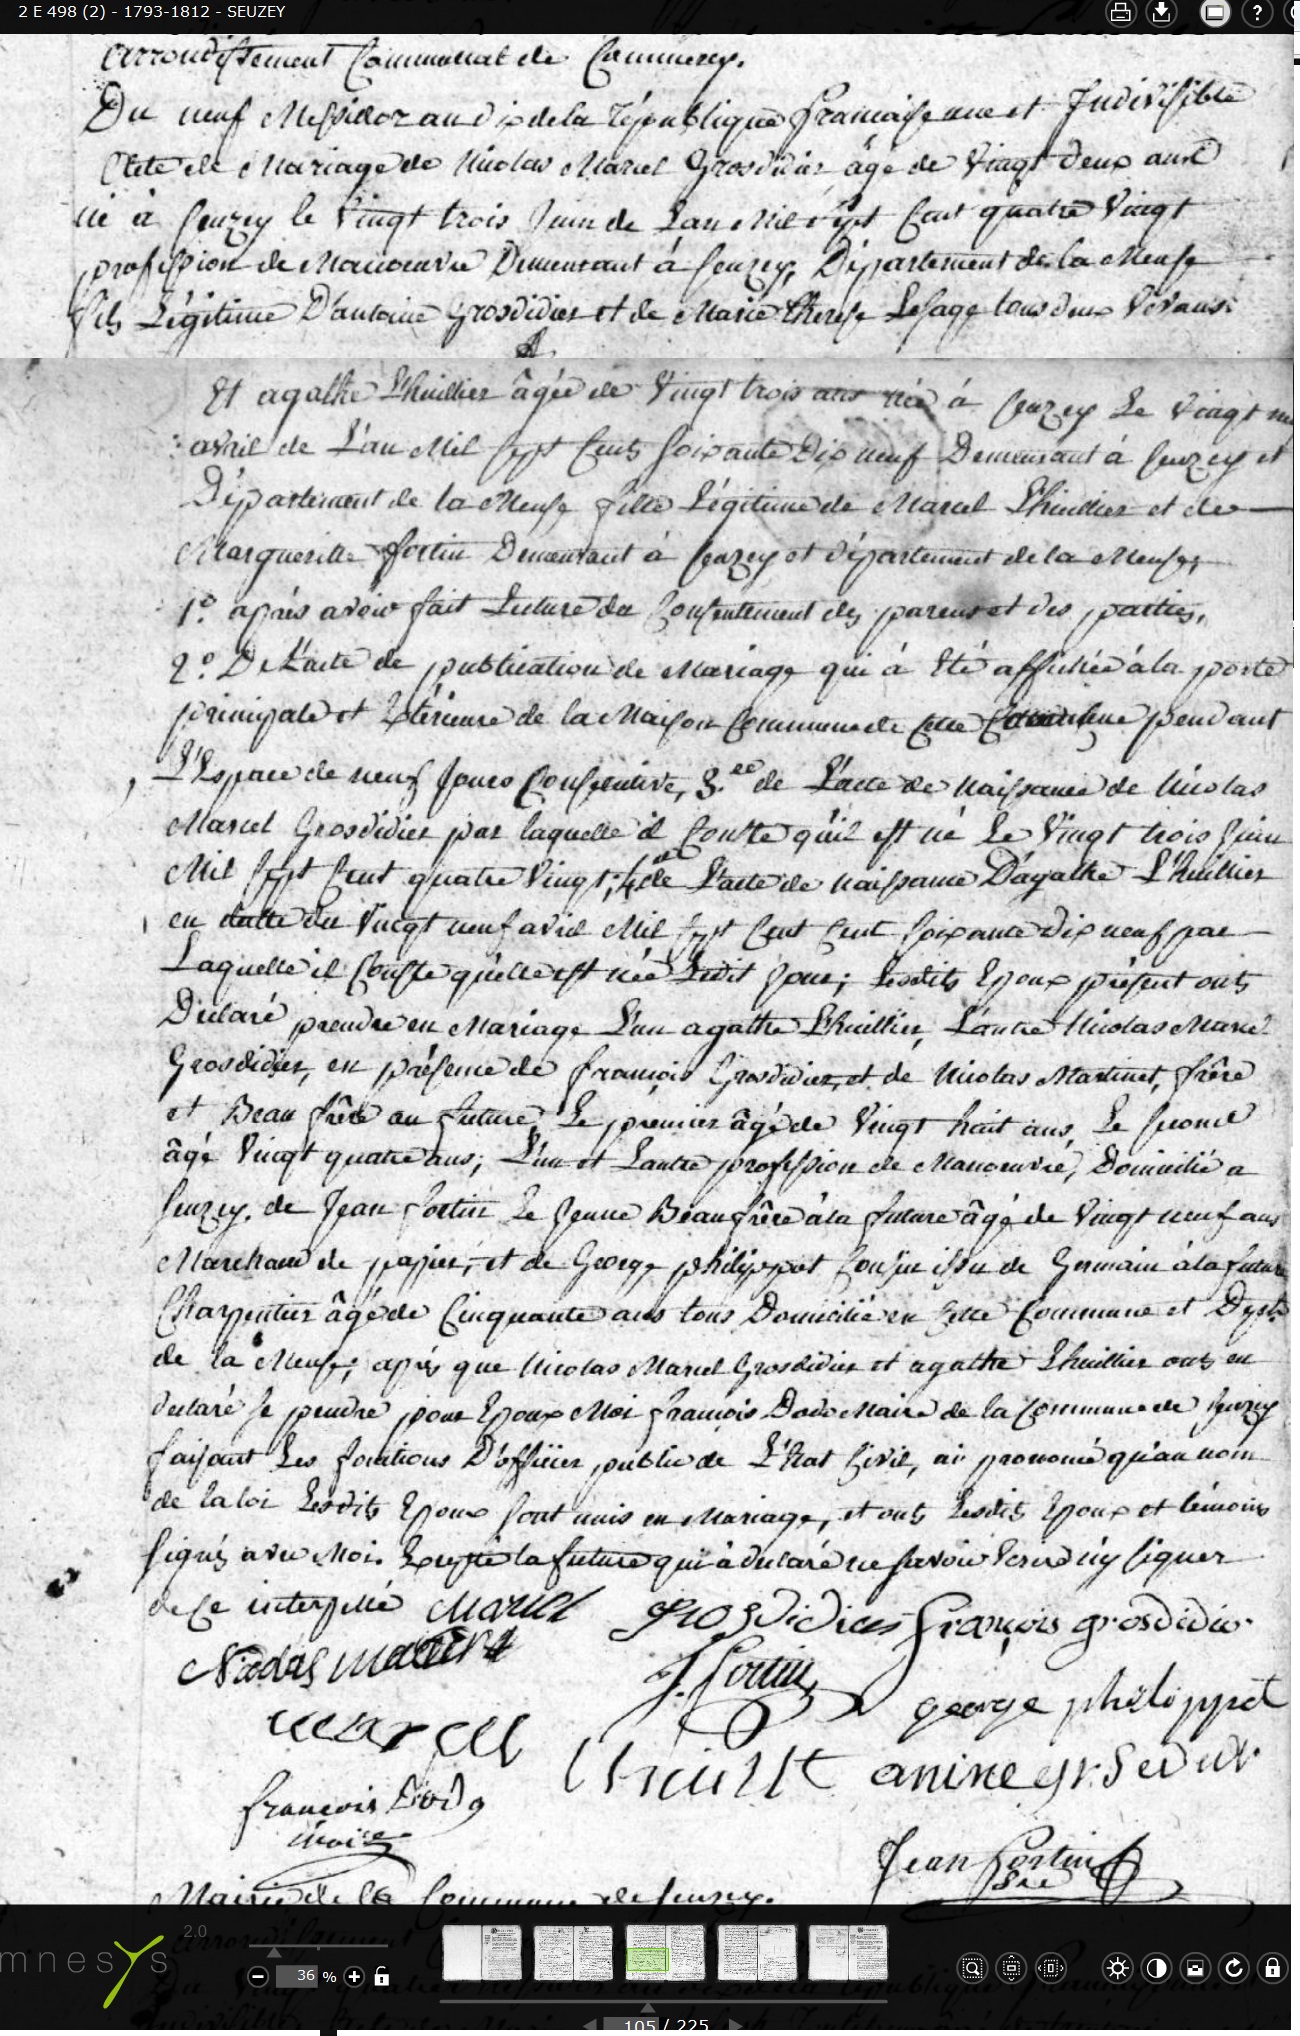 2 E 498 (2) - 1793-1812 - SEUZEY
arrondissement Communal de Commercy.
Du neuf Messidor an dix de la République française une et Indivisible
Acte de Mariage de Nicolas Marcel Grosdidier âgé de Vingt deux ans
né à Seuzey le Vingt trois Juin de L'an Mil sept Cent quatre Vingt
profession de Manoeuvre Demeurant à Seuzey, Département de la Meuse
fils Légitime D'antoine Grosdidier et de Marie therese Lesage tous deux Vivans.
Et agathe L'huillier âgée de Vingt trois ans née à Seuzey Le Vingt
avril de L'an Mil sept Cents soixante Dix neuf Demeurant à Seuzey et
Département de la Meuse fille Légitime de Marcel L'huillier et de
Margueritte fortin Demeurant à Seuzey et département de la Meuse;
1.º après avoir fait Lecture du Consentement des parens et des parties,
2.º De L'acte de publication de Mariage qui à Eté affichée à la porte
principale et Extérieure de la Maison Commune de Cette pendant
L'Espace de neuf Jours Consecutive, 3.º de L'acte de naissance de Nicolas
Marcel Grosdidier par laquelle il Conste qu'il est né Le Vingt trois Juin
Mil sept Cent quatre Vingt; 4. de L'acte de naissance D'agathe L'huillier
en datte du Vingt neuf avril Mil sept Cent Cent soixante dix neuf par
Laquelle il Conste qu'elle est née Ledit Jour; Lesdits Epoux présent onts
Déclaré prendre en Mariage L'un agathe L'huillier, L'autre Nicolas Marcel
Grosdidier, en présence de françois Grosdidier, et de Nicolas Martinet, frère
et Beau frère au future, Le premier âgé de Vingt huit ans, Le second
âgé Vingt quatre ans; L'un et L'autre profession de Manoeuvre, Domicilié a
Seuzey, de Jean fortin Le Jeune Beaufrère à la future âgé de Vingt neuf ans
Marchand de papier, et de George philippot Cousin issu de Germain à la future
Charpentier âgé de Cinquante ans tous Domicilié en Cette Commune et Dept.
de la Meuse; après que Nicolas Marcel Grosdidier et agathe L'huillier onts eu
declaré se prendre pour Epoux Moi françois Dodo Maire de la Commune de Seuzey
faisant Les fonctions D'officier public de L'Etat Civil, ai prononcé qu'au nom
de la loi Lesdits Epoux sont unis en Mariage, et onts Lesdits Epoux et témoins
signés avec Moi. Excepté la future qui à déclaré ne savoir Ecrire n'y signer
de ce interpellé Marcel Grosdidier françois grosdidier
Nicolas Martinet J. fortin george philippot
marcel L'huillier
françois Dodo
maire
Jean fortin
Mairie de la Commune de Seuzey.
mnesys 2.0
36 %
105 / 225